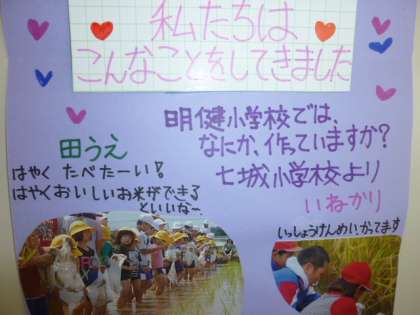 私たちは
こんなことをしてきました
明健小学校では、
なにか、作っていますか?
七城小学校より
田うえ
はやく たべたーい!
はやくおいしいお米ができる
といいな~
いねかり
いっしょうけんめいかってます